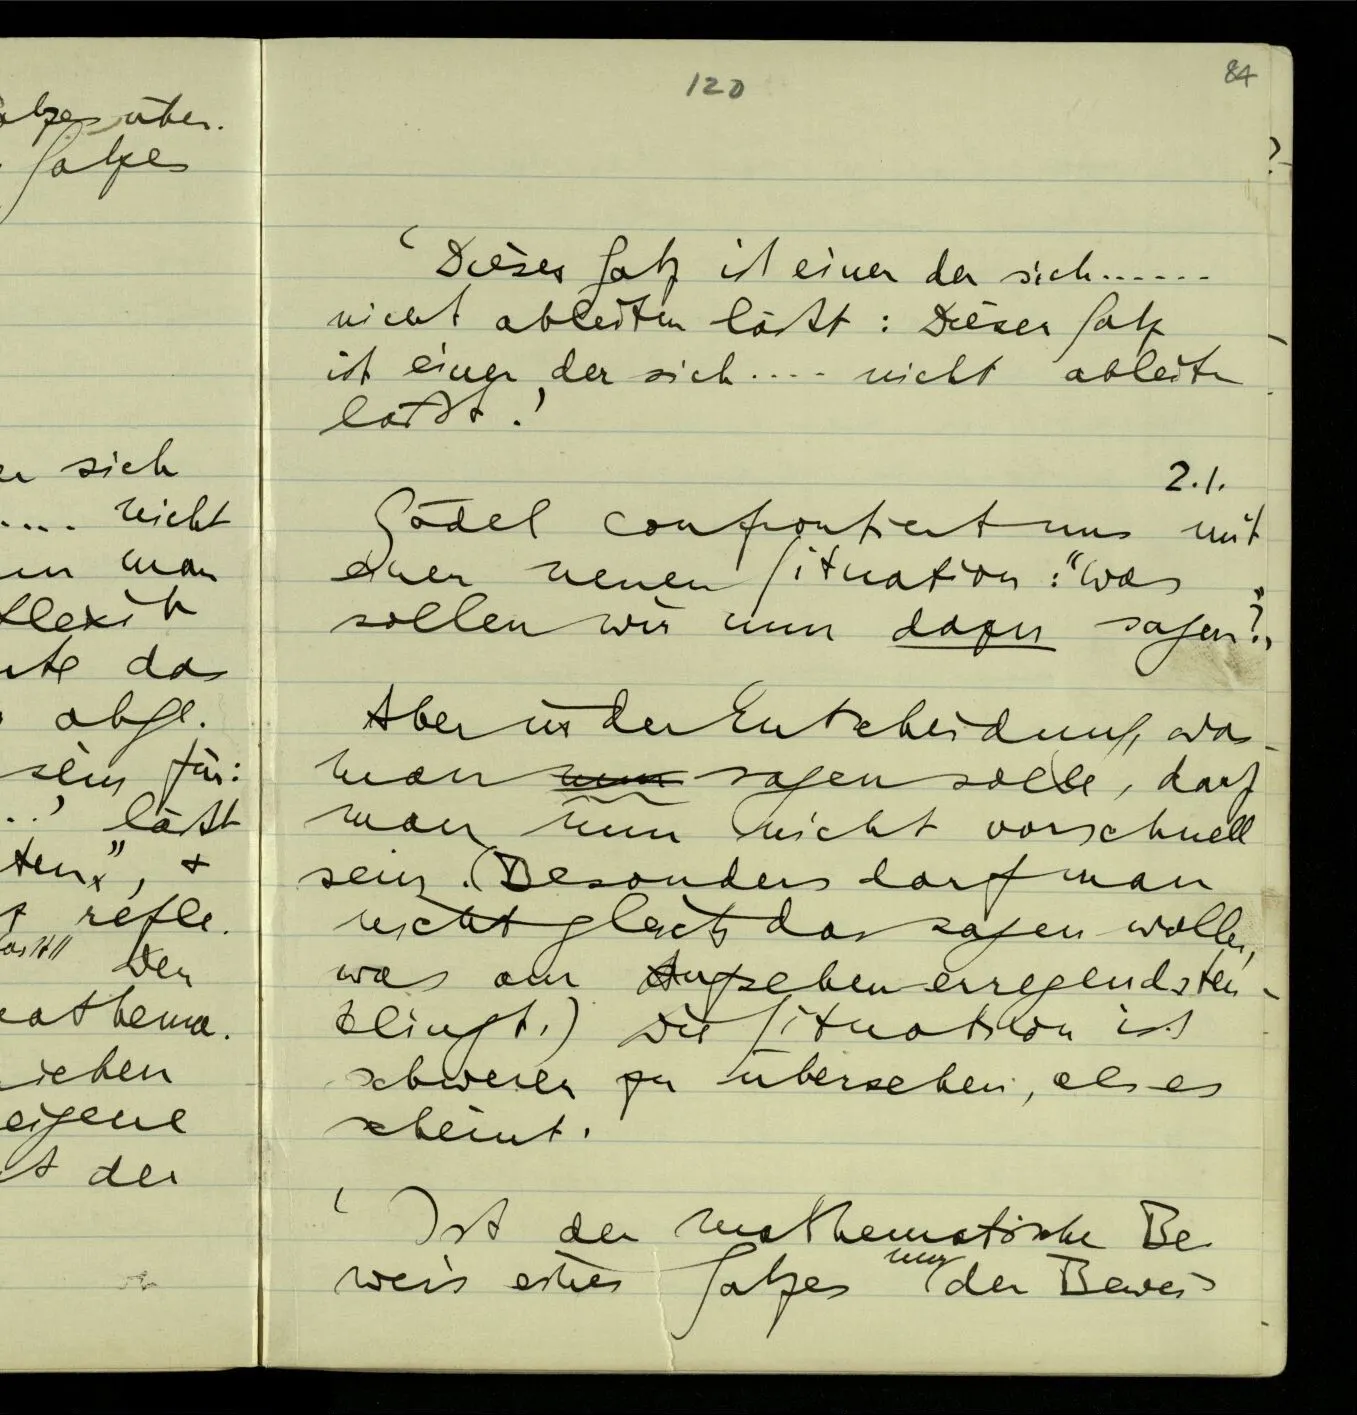 atzes über.
Satzes
sich
.... nicht
man
flexib
das
abge.
sein für:
..' läßt
ten", +
refle.
Der
mathema.
ieben
eigene
der
120
84
?
'Dieser Satz ist einer der sich......
nicht ableiten läßt: Dieser Satz
ist einer der sich.... nicht ableiten
läßt.'
2.1.
Gödel confrontiert uns mit
einer neuen Situation: "Was
sollen wir nun dazu sagen?"
Aber in der Entscheidung, was
man nun sagen solle, darf
man nun nicht vorschnell
sein. (Besonders darf man
nicht gleich das sagen wollen,
was am Aufsehenerregendsten
klingt.) Die Situation ist
schwerer zu übersehen, als es
scheint.
' Ist der mathematische Be
nur
weis eines Satzes der Beweis